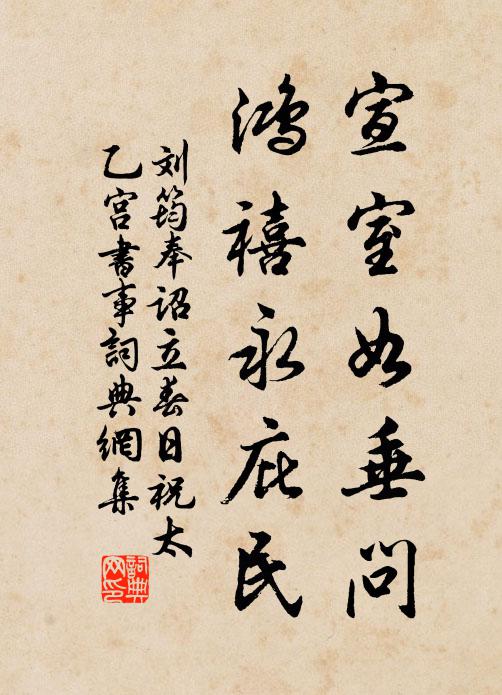 宣室如垂问
鸿禧永庇民
刘筠奉诏立春日祝太
乙宫书事詞典網集
詞典网印